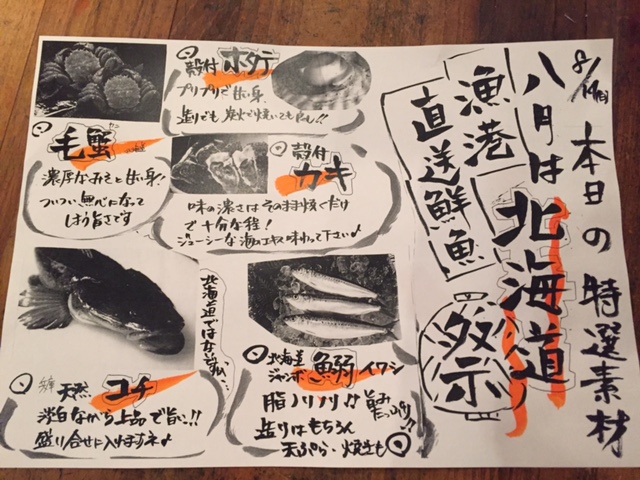 8/19(日) 本日の特選素材
八月は北海道
漁港
直送鮮魚
祭
殻付 ホタテ
プリプリで甘い身
造りでも炭火で焼いても良し!!
毛蟹
濃厚なみそと甘い身!
ついつい無心になって
しまう旨さです
殻付
カキ
味の濃さはそのまま頂くだけ
で十分な程!
ジューシーな海のエキス味わって下さい♪
北海道ではないが…
天然 コチ
淡白ながら上品で旨い!!
盛り合せに入れますネ♪
北海道
ジャンボ 鰯 イワシ
脂ノリノリ♪♪旨み
たっぷり!!
造りはもちろん
天ぷら・焼きも◎